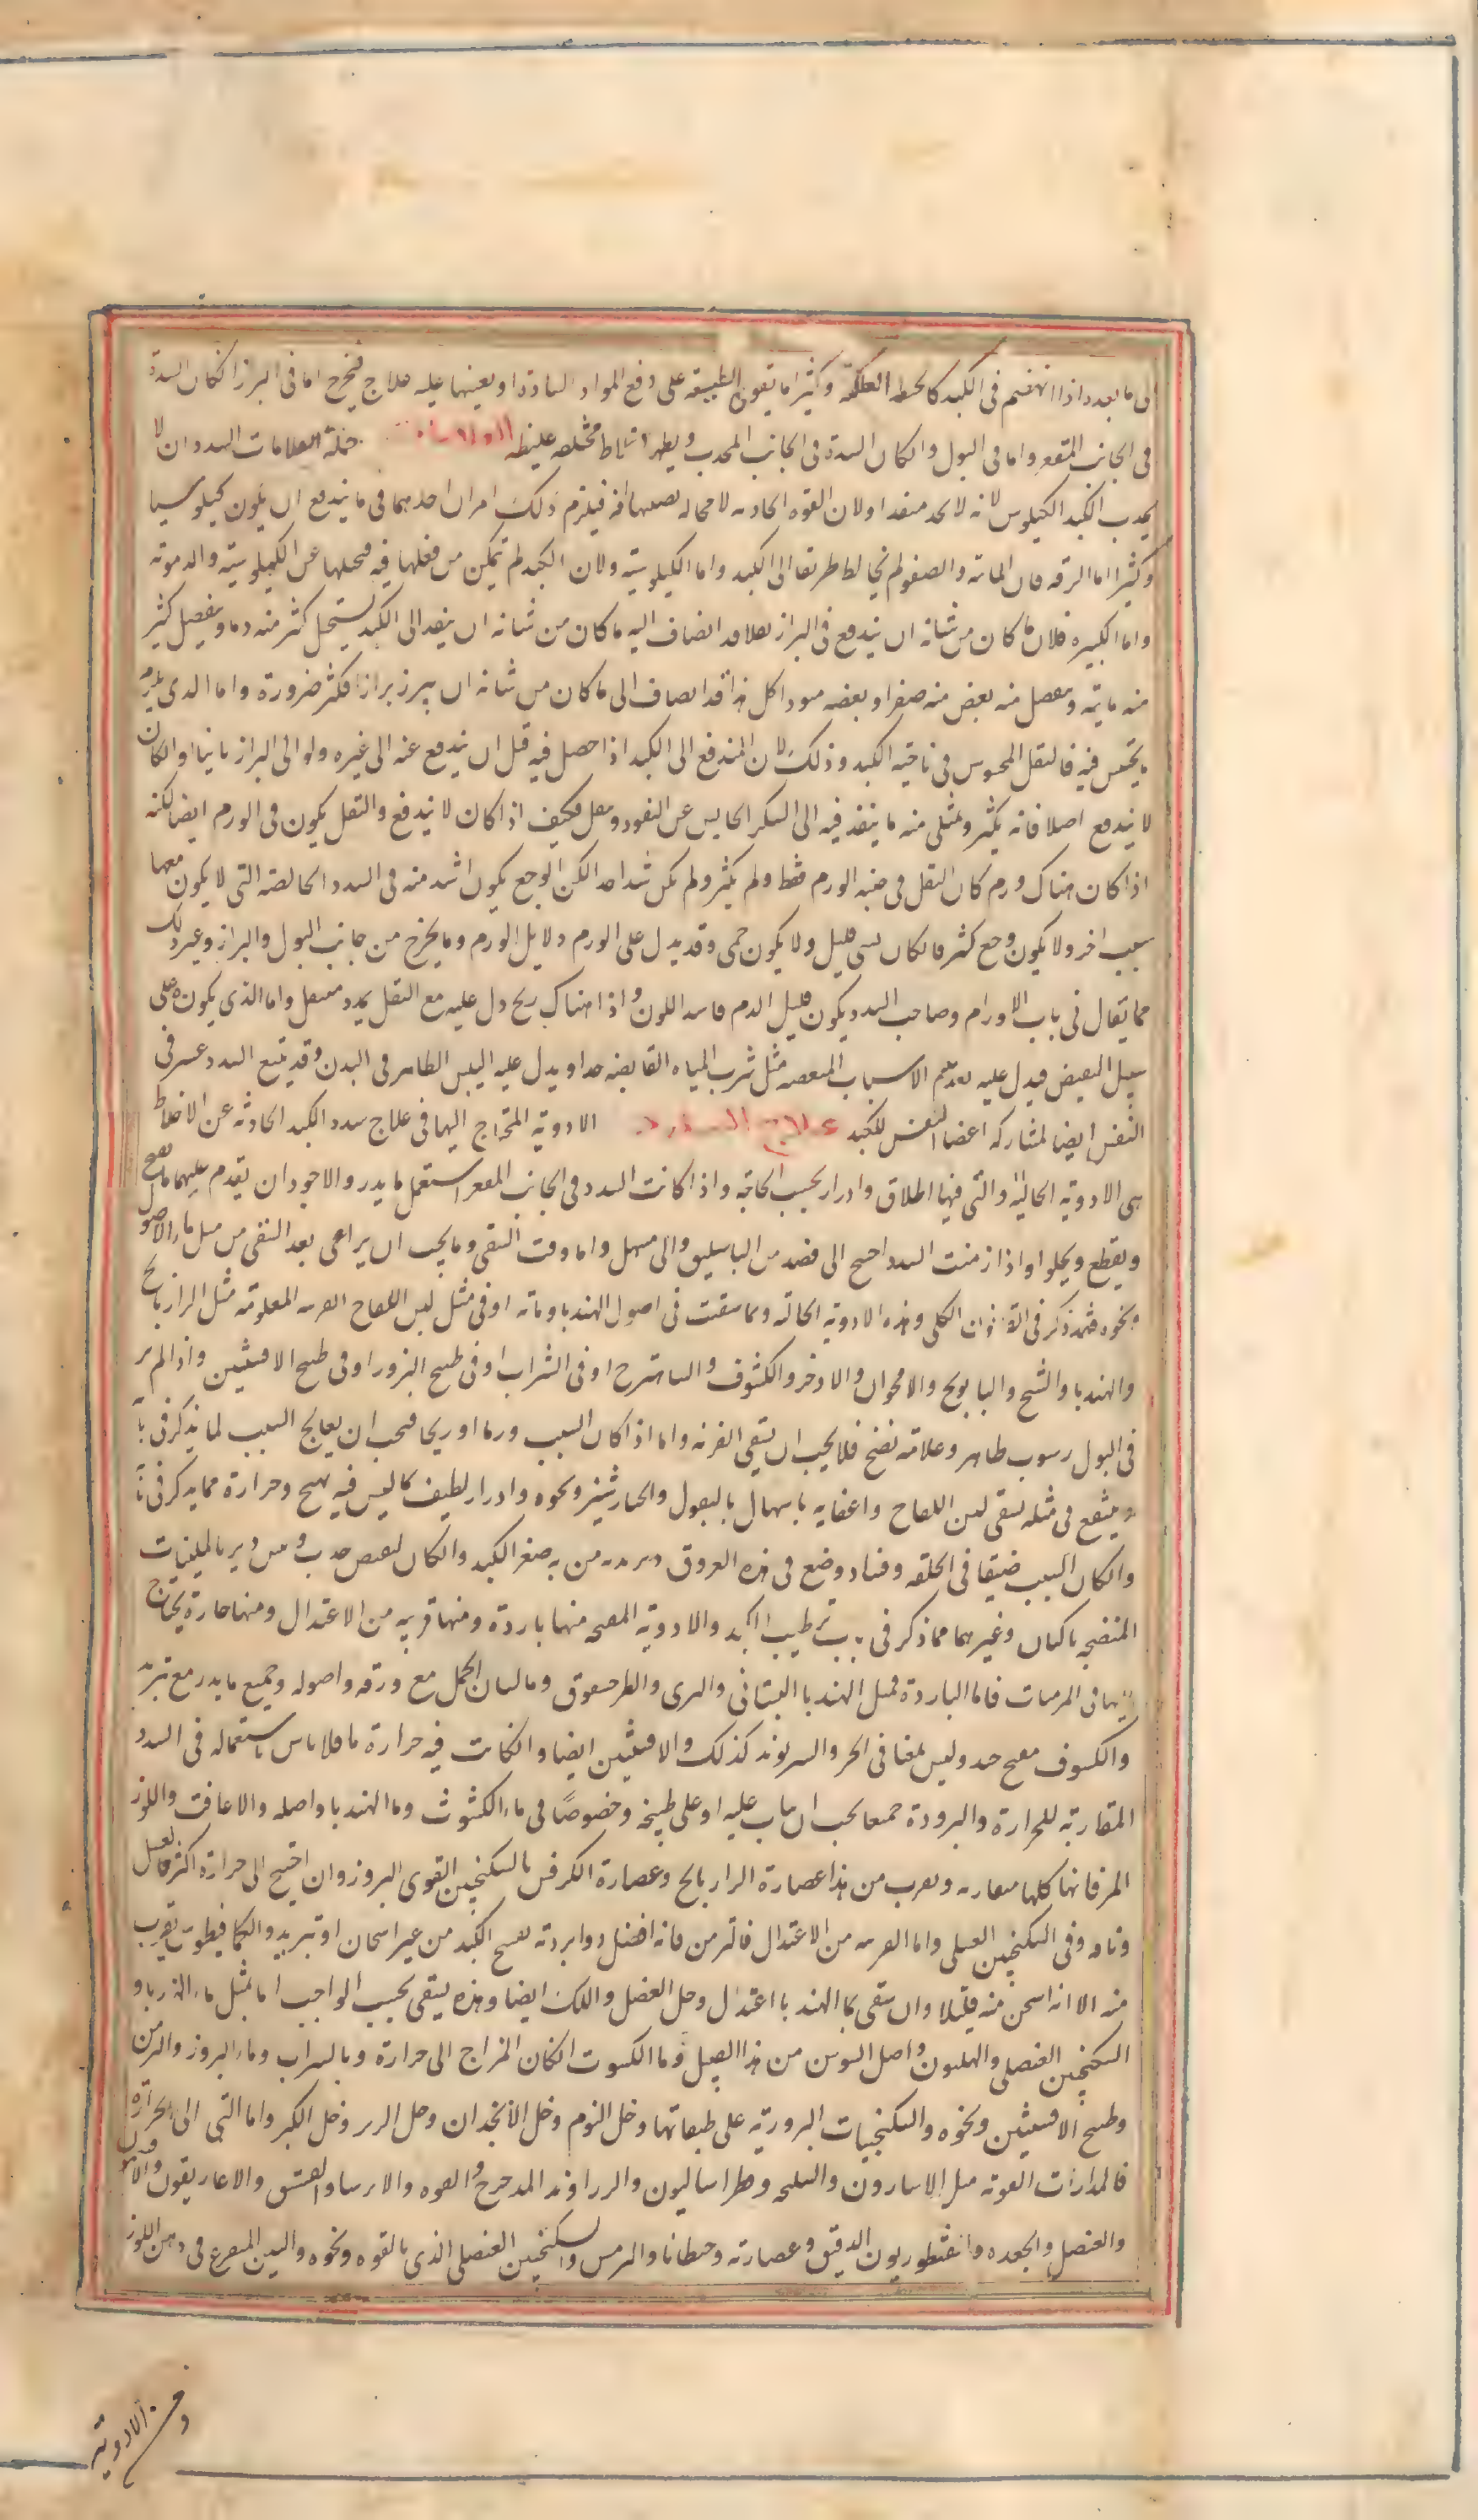 الى ما بعده اذا انهضم فى الكبد كالحنطة العلكة وكثيرا ما تقوى الطبيعة على دفع المواد السادة او يعينها عليه علاج فيخرج اما فى البراز انكان السدة
فى الجانب المقعر واما فى البول وانكان السدة فى الجانب المحدب ويظهر اخلاط مختلفه غليظه العلامات جملة العلامات السدد ان لا
يجذب الكبد الكيلوس لانه لا يجد منفذا ولان القوه الجاذبه لا محاله يصيبها افة فيلزم ذلك امران احدهما فى ما يندفع ان يكون كيلوسيا
وكثيرا اما الرقه فان المائه والصفو لم يجد طريقا الى الكبد واما الكيلوسية ولان الكبد لم تتمكن من فعلها فيه فيحيلها عن الكيلوسية والدموية
واما الكثيره فلان ما كان من شانه ان يندفع فى البراز فقد انضاف اليه ما كان من شانه ان ينفد الى الكبد ليستحيل كثير منه دما وينفصل كثير
منه مائية وينفصل منه بعض منه صفرا وبعضه سودا كل هذا قد انضاف الى ما كان من شانه ان يبرز برازا فكثر ضرورة واما الذى
يحتبس فيه فالثقل المحسوس فى ناحية الكبد وذلك لان المندفع الى الكبد اذا حصل فيه قبل ان يندفع عنه الى غيره ولو الى البراز ثانيا وانكان
لا يندفع اصلا فانه يكثر ويمتلى منه ما ينفذ فيه الى السكر الحابس عن النفوذ وثقل فكيف اذا كان لا يندفع والثقل يكون فى الورم ايضا لكنه
اذا كان هناك ورم كان الثقل فى جنبه الورم فقط ولم يكثر ولم يكن شديدا جدا لكن الوجع يكون اشد منه فى السدد الخالصه التى لا يكون معها
سبب اخر ولا يكون وجع كثير فان كان شى قليل ولا يكون حمى وقد يدل على الورم دلايل الورم وما يخرج من جانب البول والبراز وغير ذلك
مما يقال فى باب الاورام وصاحب السدد يكون قليل الدم فاسد اللون واذا هناك ريح دل عليه مع الثقل تمدد مثقل واما الذى يكون على
سبيل القبض فيدل عليه تقدم الاسباب القابضه مثل شرب المياه القابضه جدا ويدل عليه اليبس الظاهر فى البدن وقد يتبع السدد عسر فى
النفس ايضا لمشاركه اعضا النفس للكبد علاج السدد الادوية المحتاج اليها فى علاج سدد الكبد الحادثة عن الاخلاط
هى الادوية الجالية والتى فيها اطلاق وادرار بحسب الحاجة واذا كانت السدد فى الجانب المقعر استعمل ما يدر والاجود ان يقدم عليهما ما يفتح
ويقطع ويجلو اما واذا ازمنت السدد احتيج الى فصد من الباسليق والى مسهل واما وقت السقى وما يجب ان يراعى بعد السقى من مثل ماء الاصول
ونحوه فقد ذكر فى القانون الكلى وهذه الادوية الجالية ربما سقيت فى اصول الهندبا ومائه او فى مثل لبن اللقاح العربيه المعلوفة مثل الرازيانج
والهندبا والشيح والبابونج والاقحوان والاذخر والكشوث والشاهترج او فى الشراب او فى طبيخ البزور او فى طبيخ الافسنتين واذا لم ير
فى البول رسوب ظاهر وعلامة نضج فلا يجب ان تسقى القويه واما اذا كان السبب ورما او ريحا فيجب ان يعالج السبب لما يذكر فى بابه
وينتفع فى مثله بسقى لبن اللقاح واعقابه باسهال بالبقول والخيارشنبر ونحوه وادرار لطيف كاليس فيه تهيج وحرارة مما يذكر فى بابه
وانكان السبب ضيقا فى الخلقه وفساد وضع فى هذه العروق دبر تدبير من به صغر الكبد وانكان لقبض حدث دبر بالملينات
المنضجه بالكتان وغيرهما مما ذكر فى باب ترطيب الكبد والادوية المفتحه منها باردة ومنها قريبه من الاعتدال ومنها حارة يحتاج
اليها فى المزمنات فاما الباردة فمثل الهندبا البستانى والبرى والطرخشقوق وماء لسان الحمل مع ورقه واصوله وجميع ما يدر مع تبريد
والكشوث مفتح جيد وليس بمعنا فى الحر والريوند كذلك والافسنتين ايضا وان كانت فيه حرارة ما فلا باس باستعماله فى السدد
المقاربة للحرارة والبرودة جميعا يجب ان يداب عليه او على طبيخه وخصوصا فى ماء الكشوث وماء الهندبا واصله والاغافت واللوز
المر فانها كلها متقاربه ويقرب من هذا عصارة الرازيانج وعصارة الكرفس بالسكنجبين القوى البزور وان احتيج الى حرارة اكثر فالعسل
ومائه وفى السكنجبين العسلى واما القريبه من الاعتدال فالترمس فانه افضل دوا يراد به تفتح الكبد من غير اسخان او تبريد والكمافيطوس يقرب
منه الا انه اسخن منه قليلا وان سقى بماء الهندبا اعتدل وخل العنصل واللك ايضا وهذه يسقى بحسب الواجب اما بمثل ماء الهندبا و
السكنجبين العنصلى والهليون واصل السوس من هذا القبيل وماء الكشوث انكان المزاج الى حرارة وبالشراب وماء البزور والترمس
وطبيخ الافسنتين ونحوه والسكنجبينات البزورية على طبقاتها وخل الثوم وخل الانجدان وخل الزيز وخل الكبر واما التى الى الحرارة
فالمدرات القوية مثل الاسارون والسليخه وفطراساليون والزراوند المدحرج والفوه والايرسا والفستق والاغاريقون والافتيمون
والعنصل والجعده والقنطوريون الدقيق وعصارته وجنطيانا والترمس والسكنجبين العنصلى الذى بالقوه ونحوه والتين المنقوع فى دهن اللوز
ومن الادوية